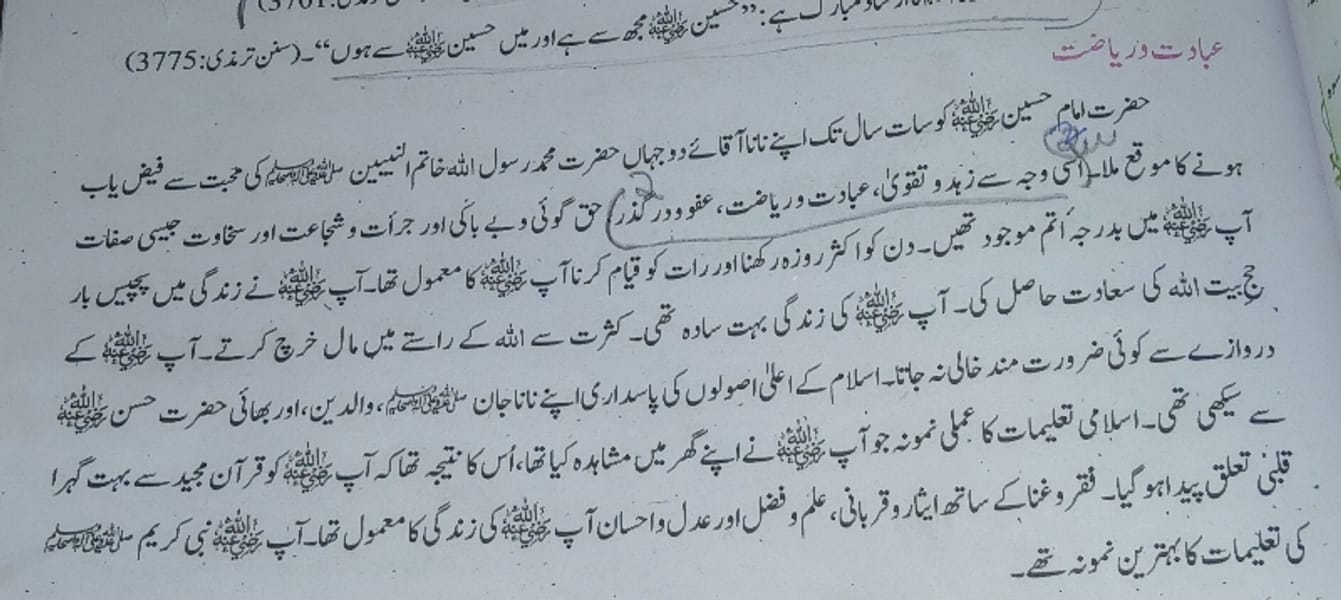 مبارک ہے: ”حسین رضی اللہ عنہ مجھ سے ہے اور میں حسین رضی اللہ عنہ سے ہوں“۔ (سنن ترمذی: 3775)
عبادت و ریاضت
حضرت امام حسین رضی اللہ عنہ کو سات سال تک اپنے نانا آقائے دو جہاں حضرت محمد رسول اللہ خاتم النبیین صلی اللہ علیہ وسلم کی محبت سے فیض یاب
ہونے کا موقع ملا۔ اسی وجہ سے زہد و تقویٰ، عبادت و ریاضت، عفو و درگذر، حق گوئی و بے باکی اور جرأت و شجاعت اور سخاوت جیسی صفات
آپ رضی اللہ عنہ میں بدرجہ أتم موجود تھیں۔ دن کو اکثر روزہ رکھنا اور رات کو قیام کرنا آپ رضی اللہ عنہ کا معمول تھا۔ آپ رضی اللہ عنہ نے زندگی میں پچیس بار
حج بیت اللہ کی سعادت حاصل کی۔ آپ رضی اللہ عنہ کی زندگی بہت سادہ تھی۔ کثرت سے اللہ کے راستے میں مال خرچ کرتے۔ آپ رضی اللہ عنہ کے
دروازے سے کوئی ضرورت مند خالی نہ جاتا۔ اسلام کے اعلیٰ اصولوں کی پاسداری اپنے نانا جان صلی اللہ علیہ وسلم، والدین، اور بھائی حضرت حسن رضی اللہ عنہ
سے سیکھی تھی۔ اسلامی تعلیمات کا عملی نمونہ جو آپ رضی اللہ عنہ نے اپنے گھر میں مشاہدہ کیا تھا، اُس کا نتیجہ تھا کہ آپ رضی اللہ عنہ کو قرآن مجید سے بہت گہرا
قلبی تعلق پیدا ہو گیا۔ فقر و غنا کے ساتھ ایثار و قربانی، علم و فضل اور عدل و احسان آپ رضی اللہ عنہ کی زندگی کا معمول تھا۔ آپ رضی اللہ عنہ نبی کریم صلی اللہ علیہ وسلم
کی تعلیمات کا بہترین نمونہ تھے۔